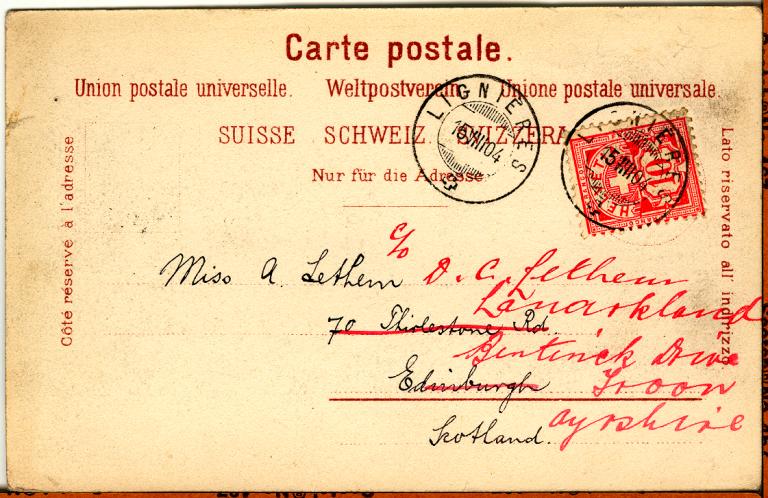 Carte postale.
Union postale universelle. Weltpostverein. Unione postale universale.
SUISSE SCHWEIZ. SVIZZERA
Nur für die Adresse
Côté réservé à l'adresse
Lato riservato all' indirizzo
LIGNIÈRES
15 VIII 04
LIGNIÈRES
15 VIII 04
HELVETIA
10
Miss A. Lethem c/o D. C. Lethem
Lanarkland
70 Thirlestone Rd.
Bentinck Drive
Edinburgh Troon
Scotland. Ayrshire